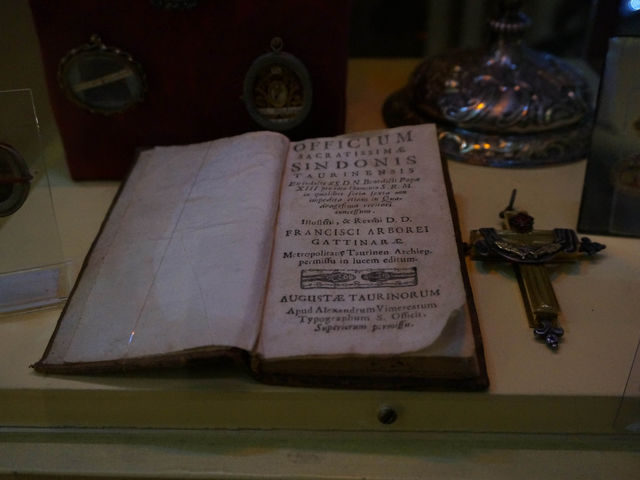 OFFICIUM
SACRATISSIMÆ
SINDONIS
TAURINENSIS
Ex indulto SS. D. N. Benedicti Papæ
XIII
in qualibet feria sexta non
impedita etiam in Qua-
dragesima recitari
concessum.
Illustriss, & Reveren D. D.
FRANCISCI ARBOREI
GATTINARÆ
Metropolitanæ Taurinen Archiep.
permissu in lucem editum.
AUGUSTÆ TAURINORUM
Apud Alexandrum Vimercatum
Typographum S. Officii.
Superiorum permissu.